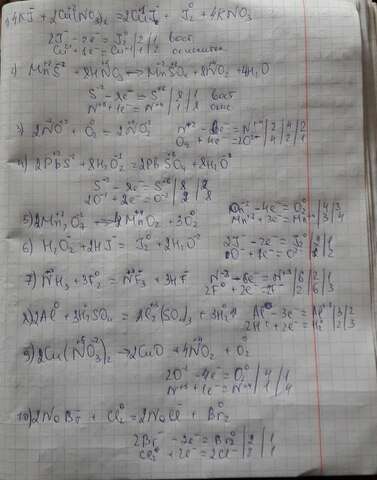 4KJ + 2Cu(NO3)2 = 2CuJ + J2 + 4KNO3
2J⁻ - 2e⁻ = J2⁰ | 2 | 1 восст
Cu⁺² + 1e⁻ = Cu⁺¹ | 1 | 2
MnS⁻² + 8HNO3 → MnSO4 + 8NO2 + 4H2O
S⁻² - 8e⁻ = S⁺⁶ | 8 | 1 восст
N⁺⁵ + 1e⁻ = N⁺⁴ | 1 | 8 окис
3) 2NO + O2 = 2NO2 N⁺² - 2e⁻ = N⁺⁴ | 2 | 4 | 2
O2 + 4e⁻ = 2O⁻² | 4 | 2 | 1
4) 2PbS + 8H2O2 = 2PbSO4 + 8H2O
S⁻² - 8e⁻ = S⁺⁶ | 8 | 2
2O⁻¹ + 2e⁻ = O⁻² | 2 | 8
5) 2Mn2O7 → 4MnO2 + 3O2 2O⁻² - 4e⁻ = O2⁰ | 4 | 3
Mn⁺⁷ + 3e⁻ = Mn⁺⁴ | 3 | 4
6) H2O2 + 2HJ = J2 + 2H2O 2J⁻ - 2e⁻ = J2⁰ | 2 | 1
O⁻ + 1e⁻ = O⁻² | 1 | 2
7) NH3 + 3F2 = NF3 + 3HF N⁻³ - 6e⁻ = N⁺³ | 6 | 2 | 1
2F⁰ + 2e⁻ = 2F⁻ | 2 | 6 | 3
2Al + 3H2SO4 = Al2(SO4)3 + 3H2 Al⁰ - 3e⁻ = Al⁺³ | 3 | 2
2H⁺ + 2e⁻ = H2⁰ | 2 | 3
9) 2Cu(NO3)2 → 2CuO + 4NO2 + O2
2O⁻² - 4e⁻ = O2⁰ | 4 | 1
N⁺⁵ + 1e⁻ = N⁺⁴ | 1 | 4
10) 2NaBr + Cl2 = 2NaCl + Br2
2Br⁻ - 2e⁻ = Br2⁰ | 2 | 1
Cl2⁰ + 2e⁻ = 2Cl⁻ | 2 | 1